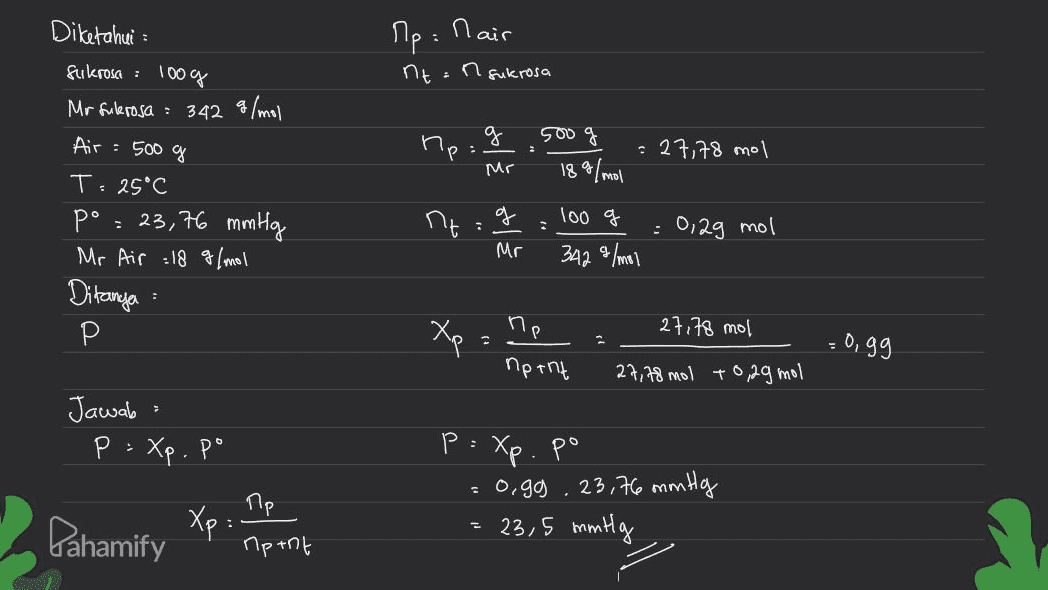 Diketahui :
Sukrosa : 100 g
Mr Sukrosa : 342 g/mol
Air : 500 g
T : 25°C
P° : 23,76 mmHg
Mr Air = 18 g/mol
Ditanya :
P
Jawab :
P : Xp . P°
Xp : np / np + nt
np : n air
nt : n sukrosa
np : g / Mr : 500 g / 18 g/mol = 27,78 mol
nt : g / Mr = 100 g / 342 g/mol = 0,29 mol
Xp = np / np + nt = 27,78 mol / 27,78 mol + 0,29 mol = 0,99
P = Xp . P°
= 0,99 . 23,76 mmHg
= 23,5 mmHg
Pahamify